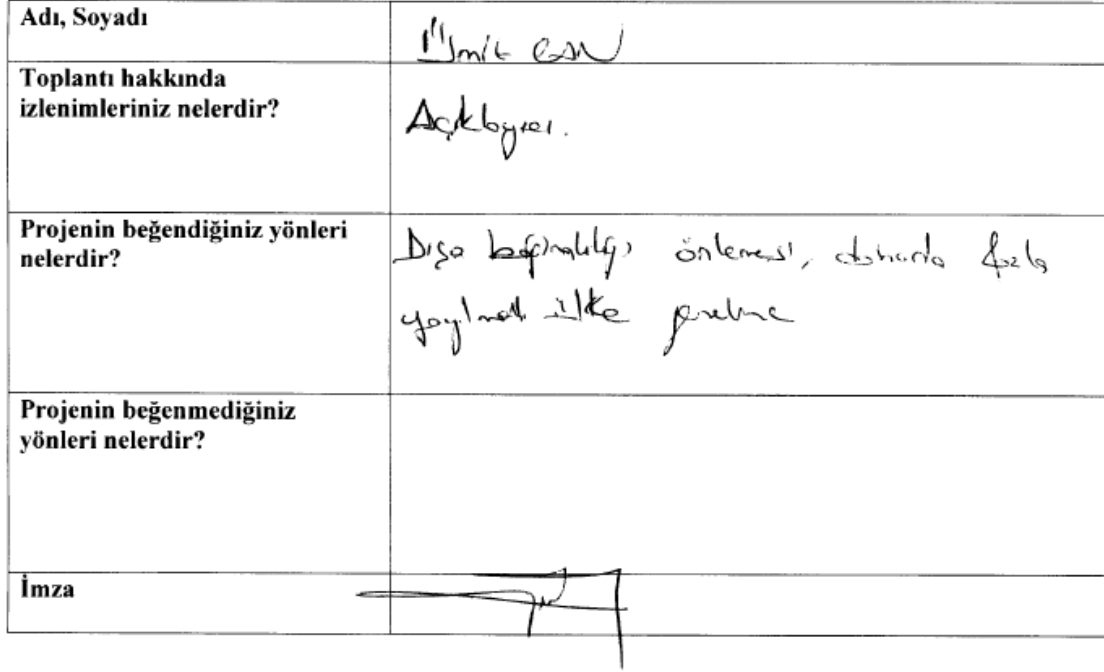 Adı, Soyadı
Ümit CAN
Toplantı hakkında
izlenimleriniz nelerdir?
Açıklayıcı.
Projenin beğendiğiniz yönleri
nelerdir?
Dışa bağımlılığı önlemesi, daha fazla
yayılmalı ülke geneline
Projenin beğenmediğiniz
yönleri nelerdir?
İmza